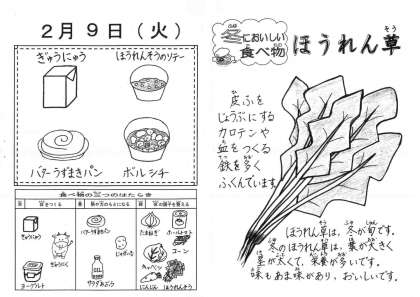 2月9日（火）
ぎゅうにゅう
ほうれんそうのソテー
バターうずまきパン
ボルシチ
食べ物の三つのはたらき
赤 血をつくる
黄 熱や力のもとになる
緑 体の調子を整える
ぎゅうにゅう
ぎゅうにく
ヨーグルト
バターうずまきパン
じゃがいも
サラダあぶら
たまねぎ
ホールトマト
コーン
キャベツ
にんじん
ほうれんそう
冬においしい
食べ物
ほうれん草
そう
皮ふを
じょうぶにする
カロテンや
血をつくる
鉄を多く
ふくんでいます。
ほうれん草は、冬が旬です。
冬のほうれん草は、葉が大きく
茎が太くて、栄養が多いです。
味もあま味があり、おいしいです。